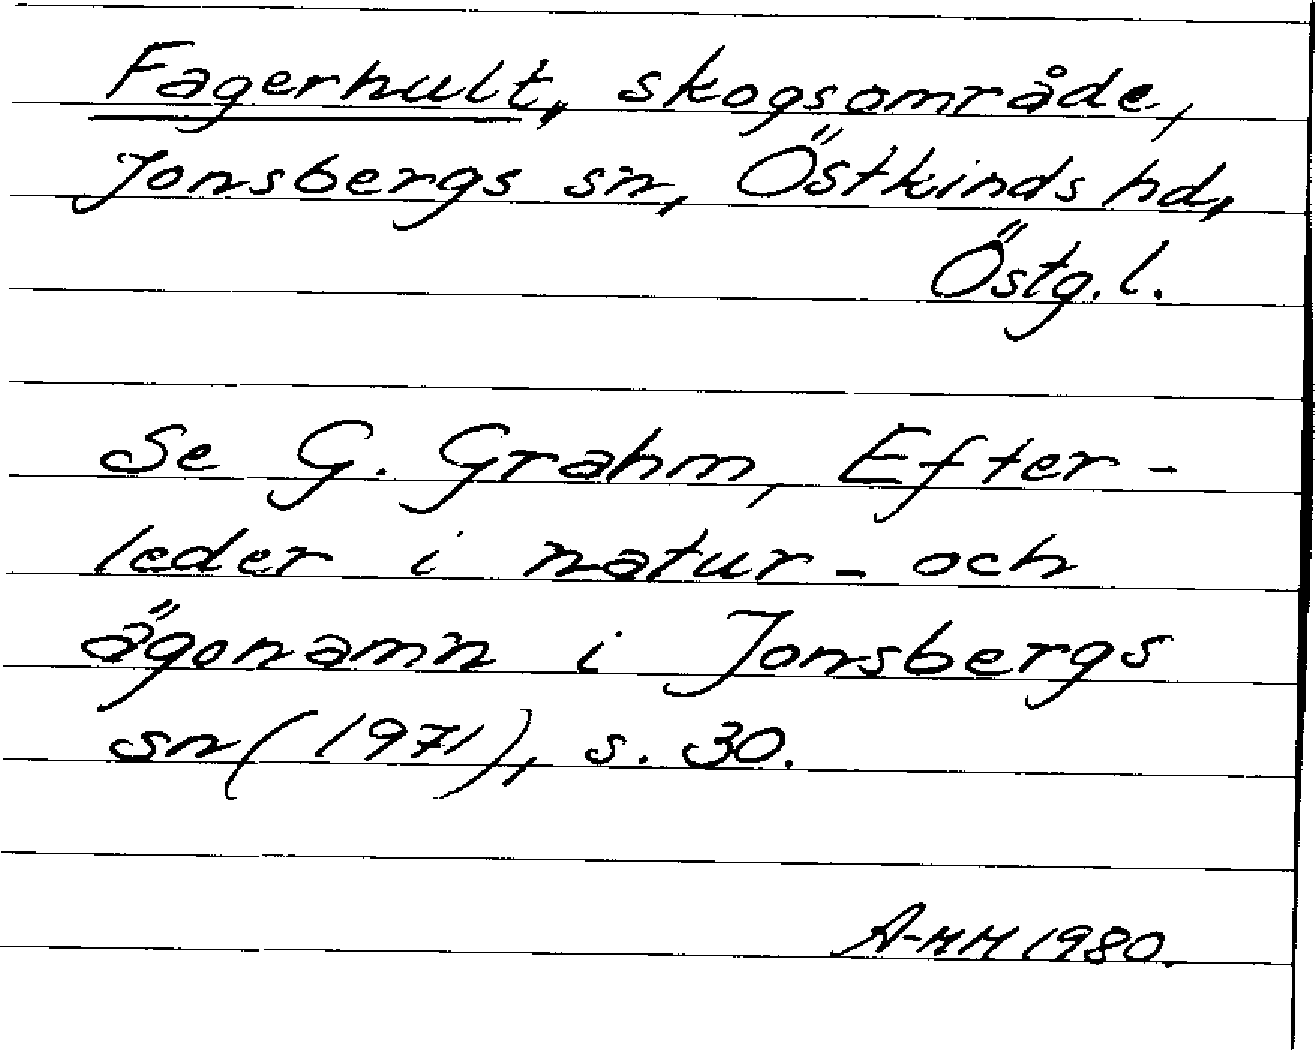 Fagerhult, skogsområde,
Jonsbergs sn, Östkinds hd,
Östg. l.
Se G. Grahm, Efter-
leder i natur- och
ägonamn i Jonsbergs
sn (1971), s. 30.
A-MM 1980.